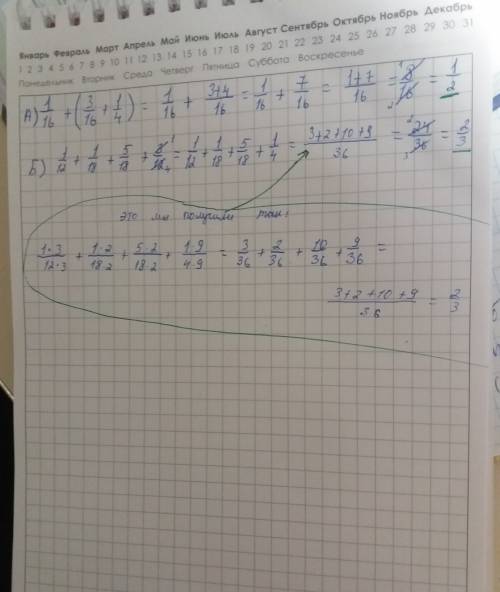 Январь Февраль Март Апрель Май Июнь Июль Август Сентябрь Октябрь Ноябрь Декабрь
1 2 3 4 5 6 7 8 9 10 11 12 13 14 15 16 17 18 19 20 21 22 23 24 25 26 27 28 29 30 31
Понедельник Вторник Среда Четверг Пятница Суббота Воскресенье
А) 1/16 + (3/16 + 1/4) = 1/16 + 3+4/16 = 1/16 + 7/16 = 1+7/16 = 8/16 = 1/2
Б) 1/12 + 1/18 + 5/18 + = 1/12 + 1/18 + 5/18 + 1/4 = 3+2+10+9/36 = 24/36 = 2/3
это мы получили так:
1·3/12·3 + 1·2/18·2 + 5·2/18·2 + 1·9/4·9 = 3/36 + 2/36 + 10/36 + 9/36 =
3+2+10+9/36 = 2/3